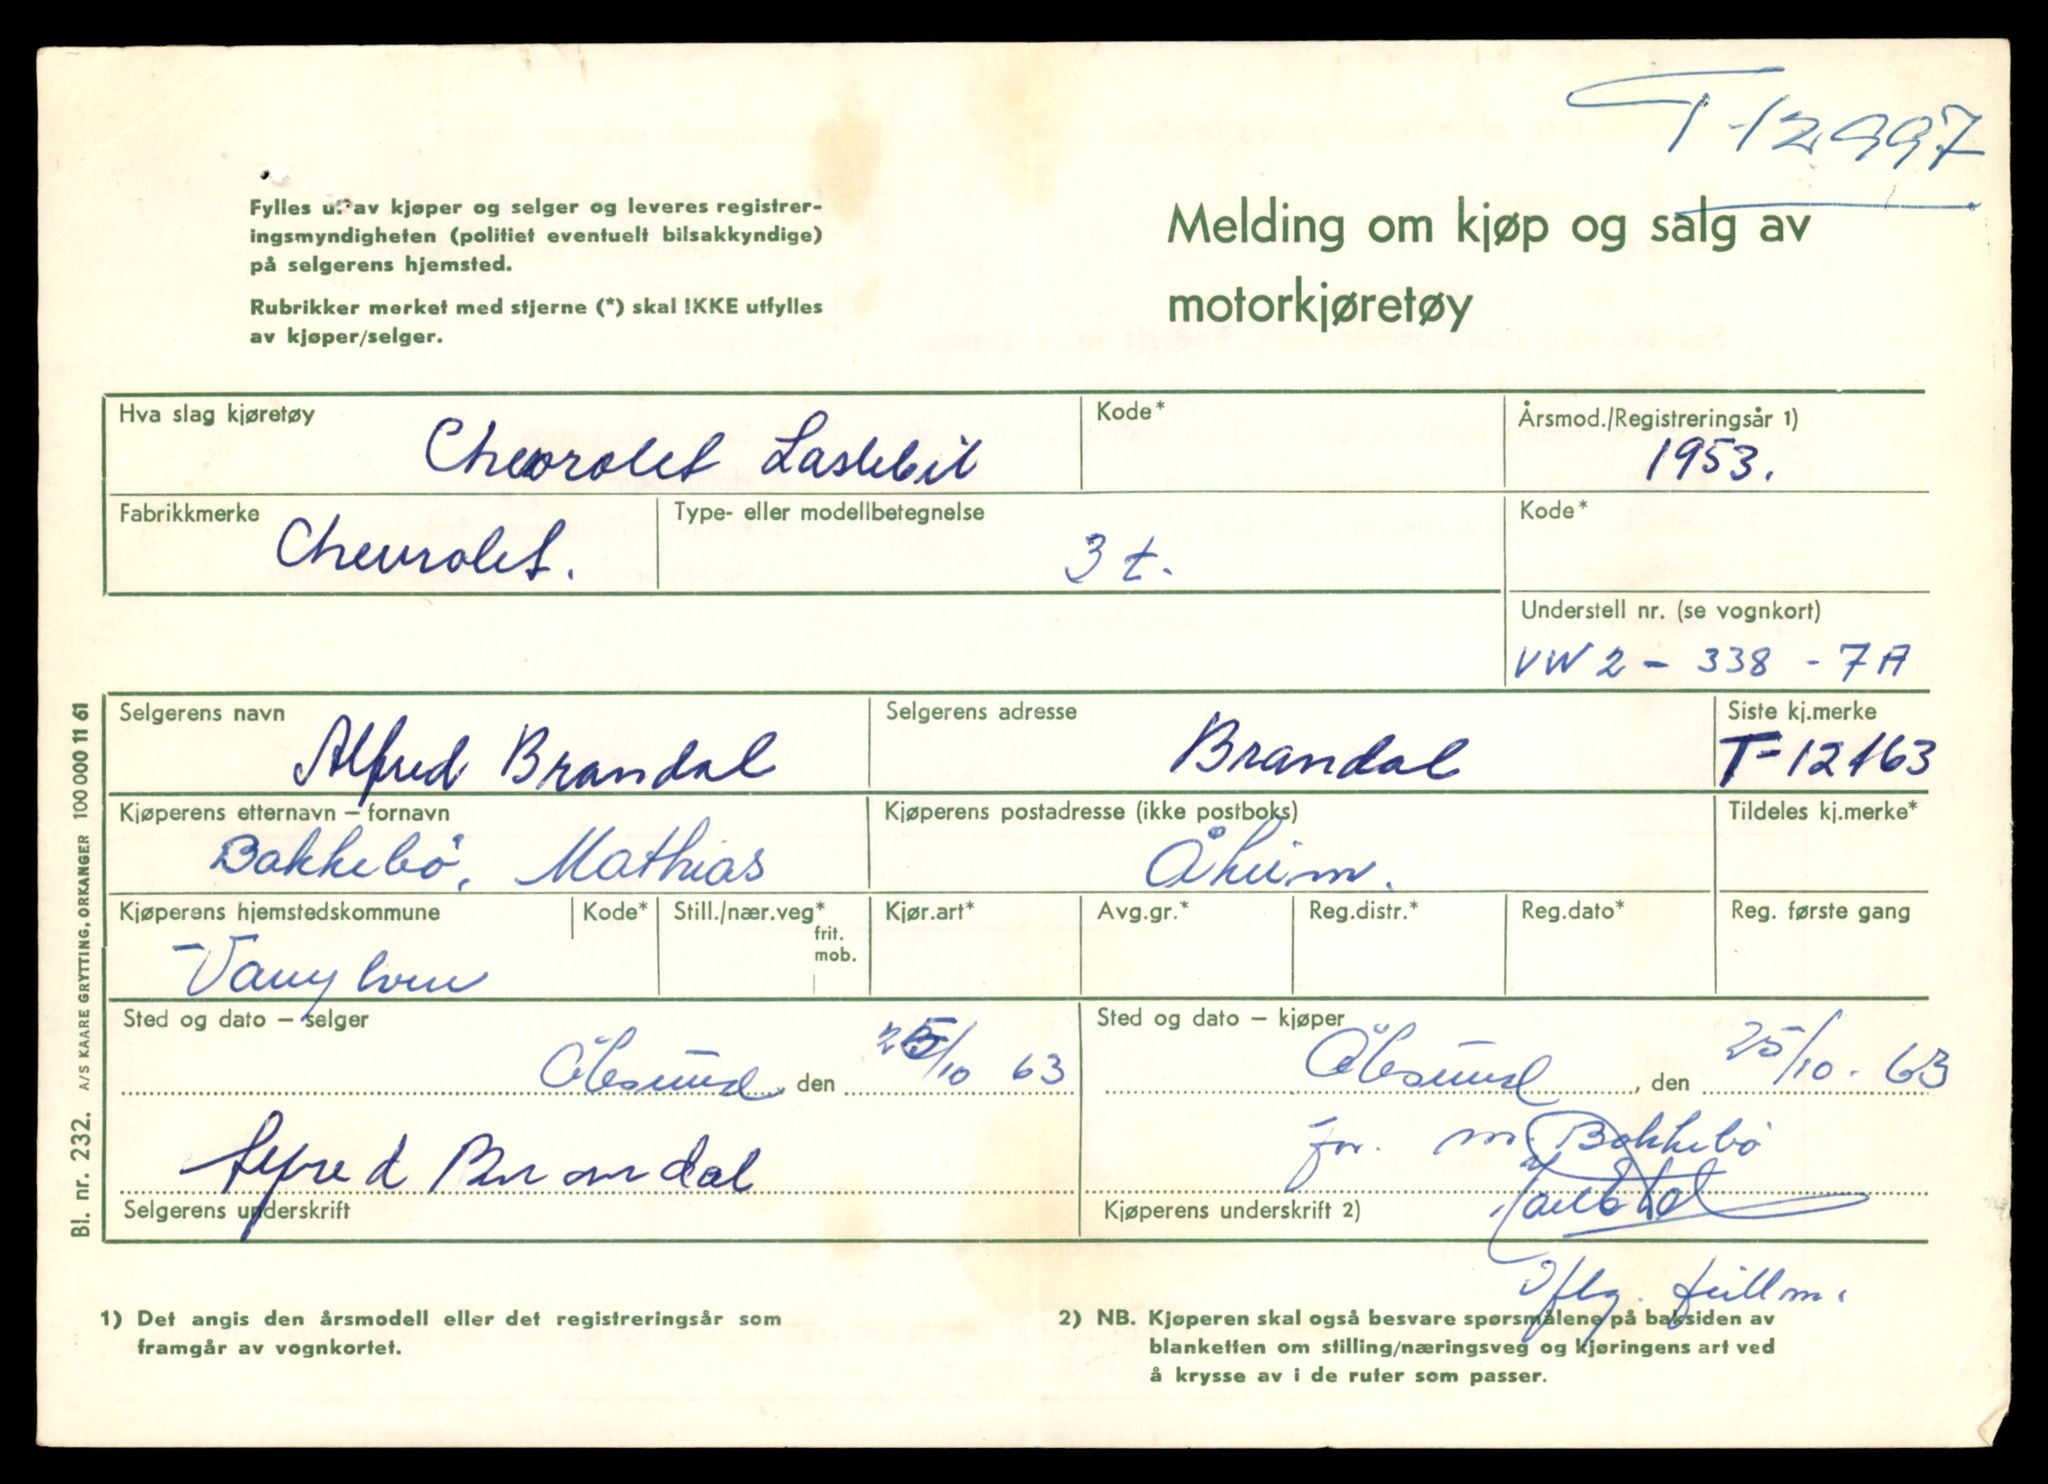 T-12997
Fylles ut av kjøper og selger og leveres registrer-
ingsmyndigheten (politiet eventuelt bilsakkyndige)
på selgerens hjemsted.
Rubrikker merket med stjerne (*) skal IKKE utfylles
av kjøper/selger.
Melding om kjøp og salg av
motorkjøretøy
Hva slag kjøretøy
Chevrolet Lastebil
Kode*
Årsmod./Registreringsår 1)
1953.
Fabrikkmerke
Chevrolet.
Type- eller modellbetegnelse
3 t.
Kode*
Understell nr. (se vognkort)
VW2 - 338 - 7A
Selgerens navn
Alfred Brandal
Selgerens adresse
Brandal
Siste kj.merke
T-12163
Kjøperens etternavn – fornavn
Bakkebö, Mathias
Kjøperens postadresse (ikke postboks)
Åheim.
Tildeles kj.merke*
Kjøperens hjemstedskommune
Vanylven
Kode*
Still./nær.veg*
frit.
mob.
Kjør.art*
Avg.gr.*
Reg.distr.*
Reg.dato*
Reg. første gang
Sted og dato – selger
Ålesund, den 25/10 63
Alfred Brandal
Selgerens underskrift
Sted og dato – kjøper
Ålesund, den 25/10. 63
for. M. Bakkebö
Kjøperens underskrift 2)
iflg. fullm.
1) Det angis den årsmodell eller det registreringsår som
framgår av vognkortet.
2) NB. Kjøperen skal også besvare spørsmålene på baksiden av
blanketten om stilling/næringsveg og kjøringens art ved
å krysse av i de ruter som passer.
Bl. nr. 232. A/S KAARE GRYTTING, ORKANGER 100 000 11 61